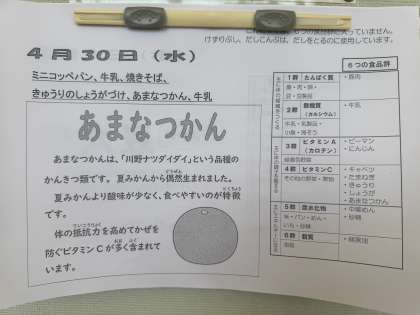 6つの食品群に入っていません。
けずりぶし、だしこんぶは、だしをとるのに使用しています。
4月30日(水)
ミニコッペパン、牛乳、焼きそば、
きゅうりのしょうがづけ、あまなつかん、牛乳
あまなつかん
あまなつかんは、「川野ナツダイダイ」という品種の
かんきつ類です。夏みかんから偶然生まれました。
夏みかんより酸味が少なく、食べやすいのが特徴
です。
体の抵抗力を高めてかぜを
防ぐビタミンCが多く含まれて
います。
6つの食品群
1群 たんぱく質
・豚肉
魚・肉・卵・
豆・豆製品
2群 無機質
(カルシウム)
・牛乳
牛乳・乳製品・
小魚・海そう
3群 ビタミンA
(カロテン)
・ピーマン
・にんじん
緑黄色野菜
4群 ビタミンC
その他の野菜・果物
・キャベツ
・たまねぎ
・きゅうり
・しょうが
・あまなつかん
5群 炭水化物
米・パン・めん・
いも・砂糖
・中華めん
・砂糖
6群 脂質
油脂